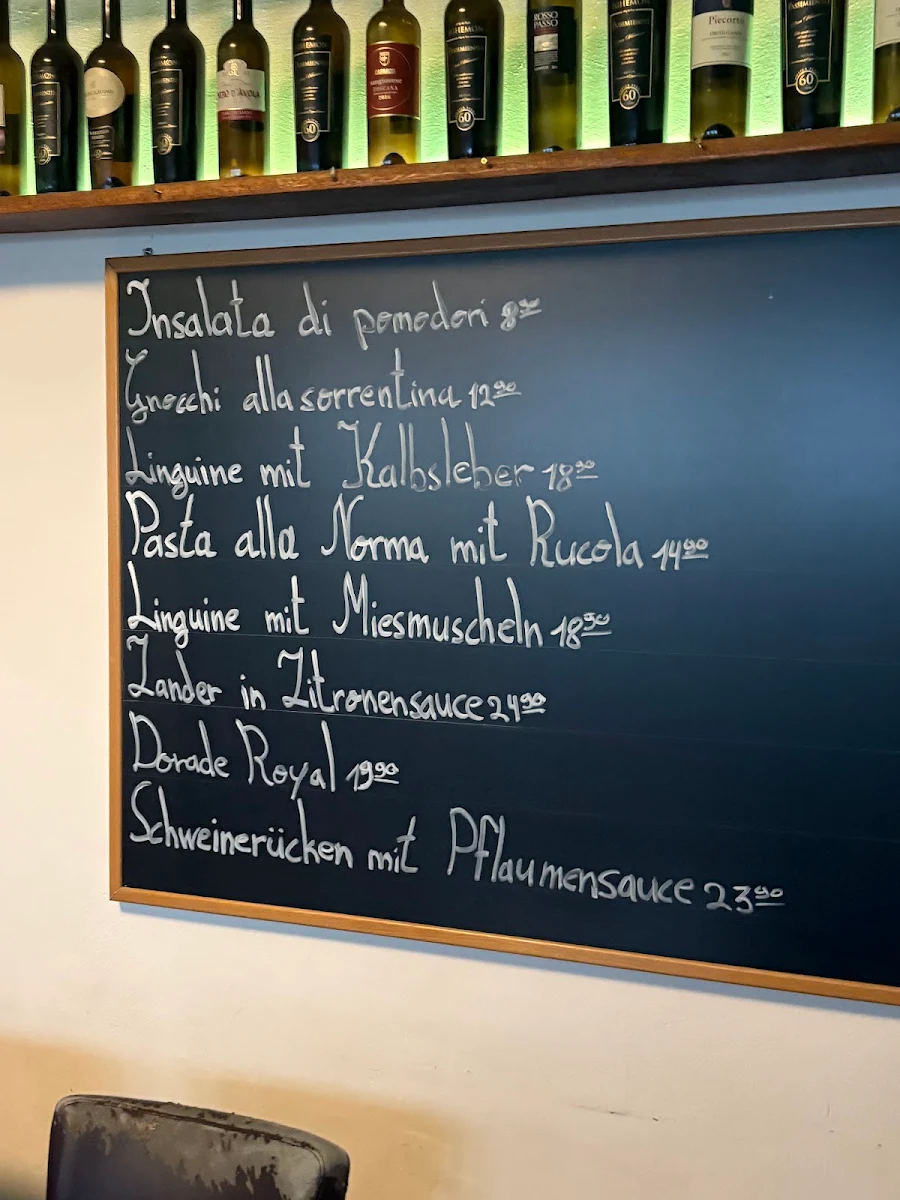 ROSSO
PASSO
Piecorto
60
60
60
60
Insalata di pomodori
Gnocchi alla sorrentina 12⁹⁰
Linguine mit Kalbsleber 18⁹⁰
Pasta alla Norma mit Rucola 14⁹⁰
Linguine mit Miesmuscheln 18⁹⁰
Zander in Zitronensauce 24⁹⁰
Dorade Royal 19⁹⁰
Schweinerücken mit Pflaumensauce 23⁹⁰